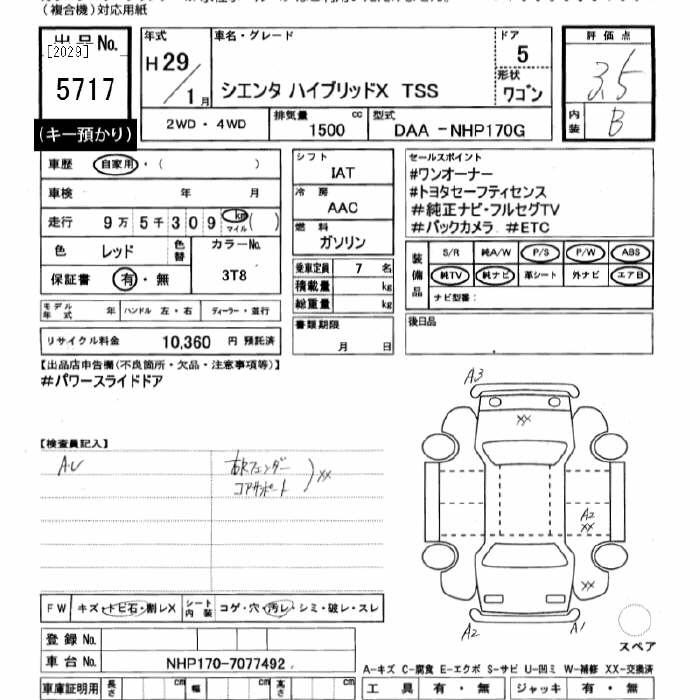 (複合機)対応用紙
出品No.
[2029]
5717
(キー預かり)
年式
H29/1月
車名・グレード
シエンタ ハイブリッドX TSS
ドア
5
形状
ワゴン
評価点
3.5
内装
B
2WD・4WD
排気量
1500 cc
型式
DAA -NHP170G
車歴 自家用・( )
車検 年 月
走行 9万5千309 km マイル( )
色 レッド 色替
カラーNo.
3T8
保証書 有・無
モデル年式 年 ハンドル 左・右 ディーラー・並行
リサイクル料金 10,360 円 預託済
シフト
IAT
冷房
AAC
燃料
ガソリン
乗車定員 7 名
積載量 kg
総重量 kg
書類期限
月 日
セールスポイント
#ワンオーナー
#トヨタセーフティセンス
#純正ナビ・フルセグTV
#バックカメラ #ETC
装備品
S/R 純A/W P/S P/W ABS
純TV 純ナビ 革シート 外ナビ エアB
ナビ型番:
後日品
【出品店申告欄(不良箇所・欠品・注意事項等)】
#パワースライドドア
【検査員記入】
A.U
右Rフェンダー
コアサポート
XX
A3
XX
A2
XX
XX
A2
A1
スペア
FW キズ・トビ石・割レX
シート内装 コゲ・穴・汚レ・シミ・破レ・スレ
登録No.
車台No. NHP170-7077492
車庫証明用 長さ cm 幅 cm 高さ cm
A-キズ C-腐食 E-エクボ S-サビ U-凹ミ W-補修 XX-交換済
工具 有・無 ジャッキ 有・無